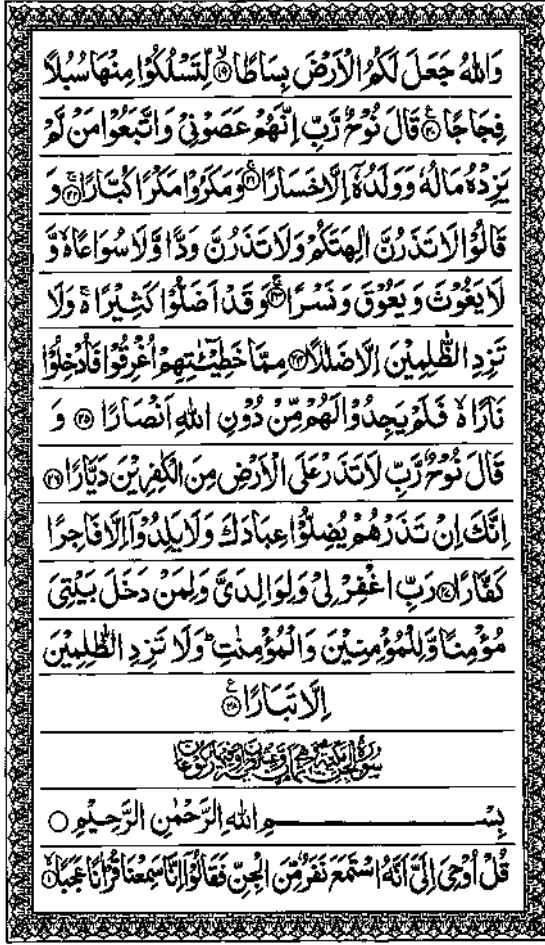 وَاللّٰهُ جَعَلَ لَكُمُ الْاَرْضَ بِسَاطًا ﴿۱۹﴾ لِّتَسْلُكُوْا مِنْهَا سُبُلًا
فِجَاجًا ﴿۲۰﴾ قَالَ نُوْحٌ رَّبِّ اِنَّهُمْ عَصَوْنِيْ وَاتَّبَعُوْا مَنْ لَّمْ
يَزِدْهُ مَالُهٗ وَوَلَدُهٗۤ اِلَّا خَسَارًا ﴿۲۱﴾ وَمَكَرُوْا مَكْرًا كُبَّارًا ﴿۲۲﴾ وَ
قَالُوْا لَا تَذَرُنَّ اٰلِهَتَكُمْ وَلَا تَذَرُنَّ وَدًّا وَّلَا سُوَاعًا ۙ وَّ
لَا يَغُوْثَ وَيَعُوْقَ وَنَسْرًا ﴿۲۳﴾ وَقَدْ اَضَلُّوْا كَثِيْرًا ۚ وَلَا
تَزِدِ الظّٰلِمِيْنَ اِلَّا ضَلٰلًا ﴿۲۴﴾ مِمَّا خَطِيْٓـٰٔتِهِمْ اُغْرِقُوْا فَاُدْخِلُوْا
نَارًا ۙ فَلَمْ يَجِدُوْا لَهُمْ مِّنْ دُوْنِ اللّٰهِ اَنْصَارًا ﴿۲۵﴾ وَ
قَالَ نُوْحٌ رَّبِّ لَا تَذَرْ عَلَى الْاَرْضِ مِنَ الْكٰفِرِيْنَ دَيَّارًا ﴿۲۶﴾
اِنَّكَ اِنْ تَذَرْهُمْ يُضِلُّوْا عِبَادَكَ وَلَا يَلِدُوْۤا اِلَّا فَاجِرًا
كَفَّارًا ﴿۲۷﴾ رَبِّ اغْفِرْ لِيْ وَلِوَالِدَيَّ وَلِمَنْ دَخَلَ بَيْتِيَ
مُؤْمِنًا وَّلِلْمُؤْمِنِيْنَ وَالْمُؤْمِنٰتِ ؕ وَلَا تَزِدِ الظّٰلِمِيْنَ
اِلَّا تَبَارًا ﴿۲۸﴾
سورة الجن مكية
بِسْمِ اللّٰهِ الرَّحْمٰنِ الرَّحِيْمِ ○
قُلْ اُوْحِيَ اِلَيَّ اَنَّهُ اسْتَمَعَ نَفَرٌ مِّنَ الْجِنِّ فَقَالُوْۤا اِنَّا سَمِعْنَا قُرْاٰنًا عَجَبًا ﴿۱﴾